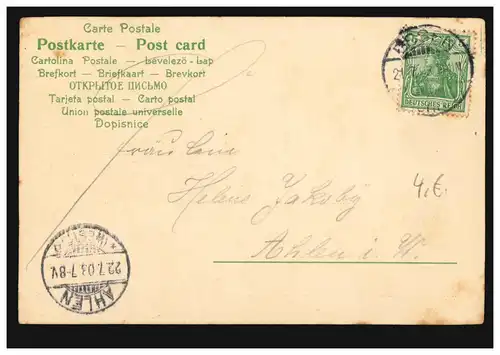 Carte Postale
Postkarte — Post card
Cartolina Postale — Levelező-Lap
Brefkort — Briefkaart — Brevkort
ОТКРЫТОЕ ПИСЬМО
Tarjeta postal — Carto postal
Union postale universelle
Dopisnice
DEUTSCHES REICH
Fräulein
Helene
4,€.
Ahlen i. W.
(WESTF.)
22.7.03.7-8V.
AHLEN